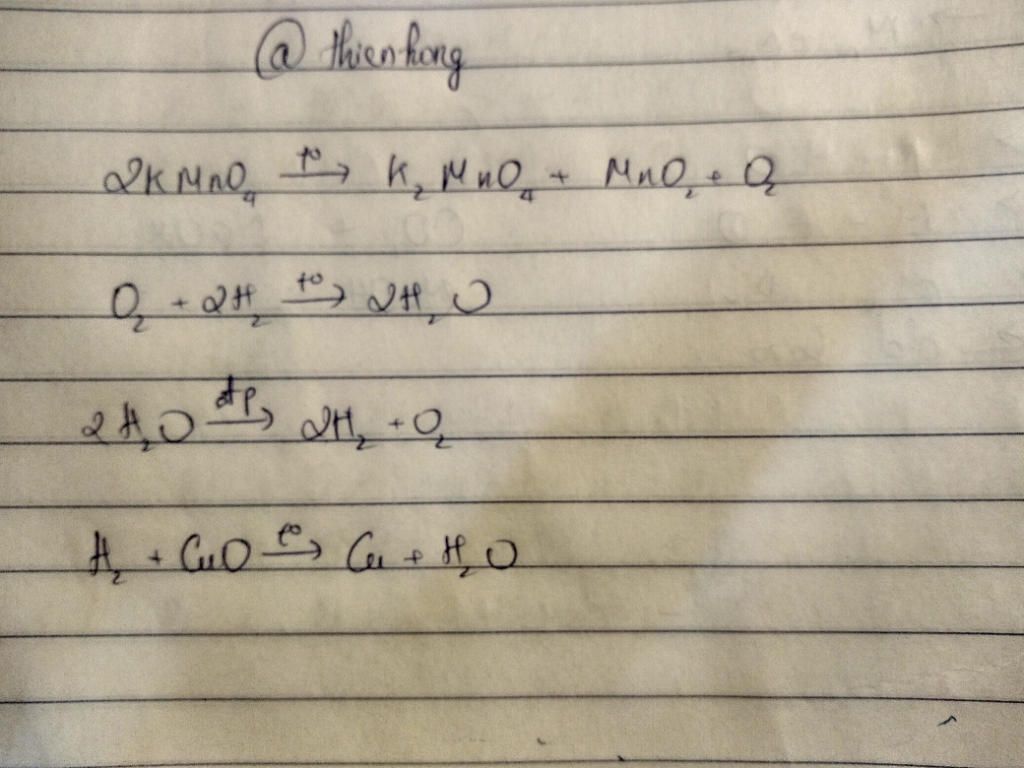 @ thienhong
2KMnO₄ \xrightarrow{t^o} K₂MnO₄ + MnO₂ + O₂
O₂ + 2H₂ \xrightarrow{t^o} 2H₂O
2H₂O \xrightarrow{đp} 2H₂ + O₂
H₂ + CuO \xrightarrow{t^o} Cu + H₂O